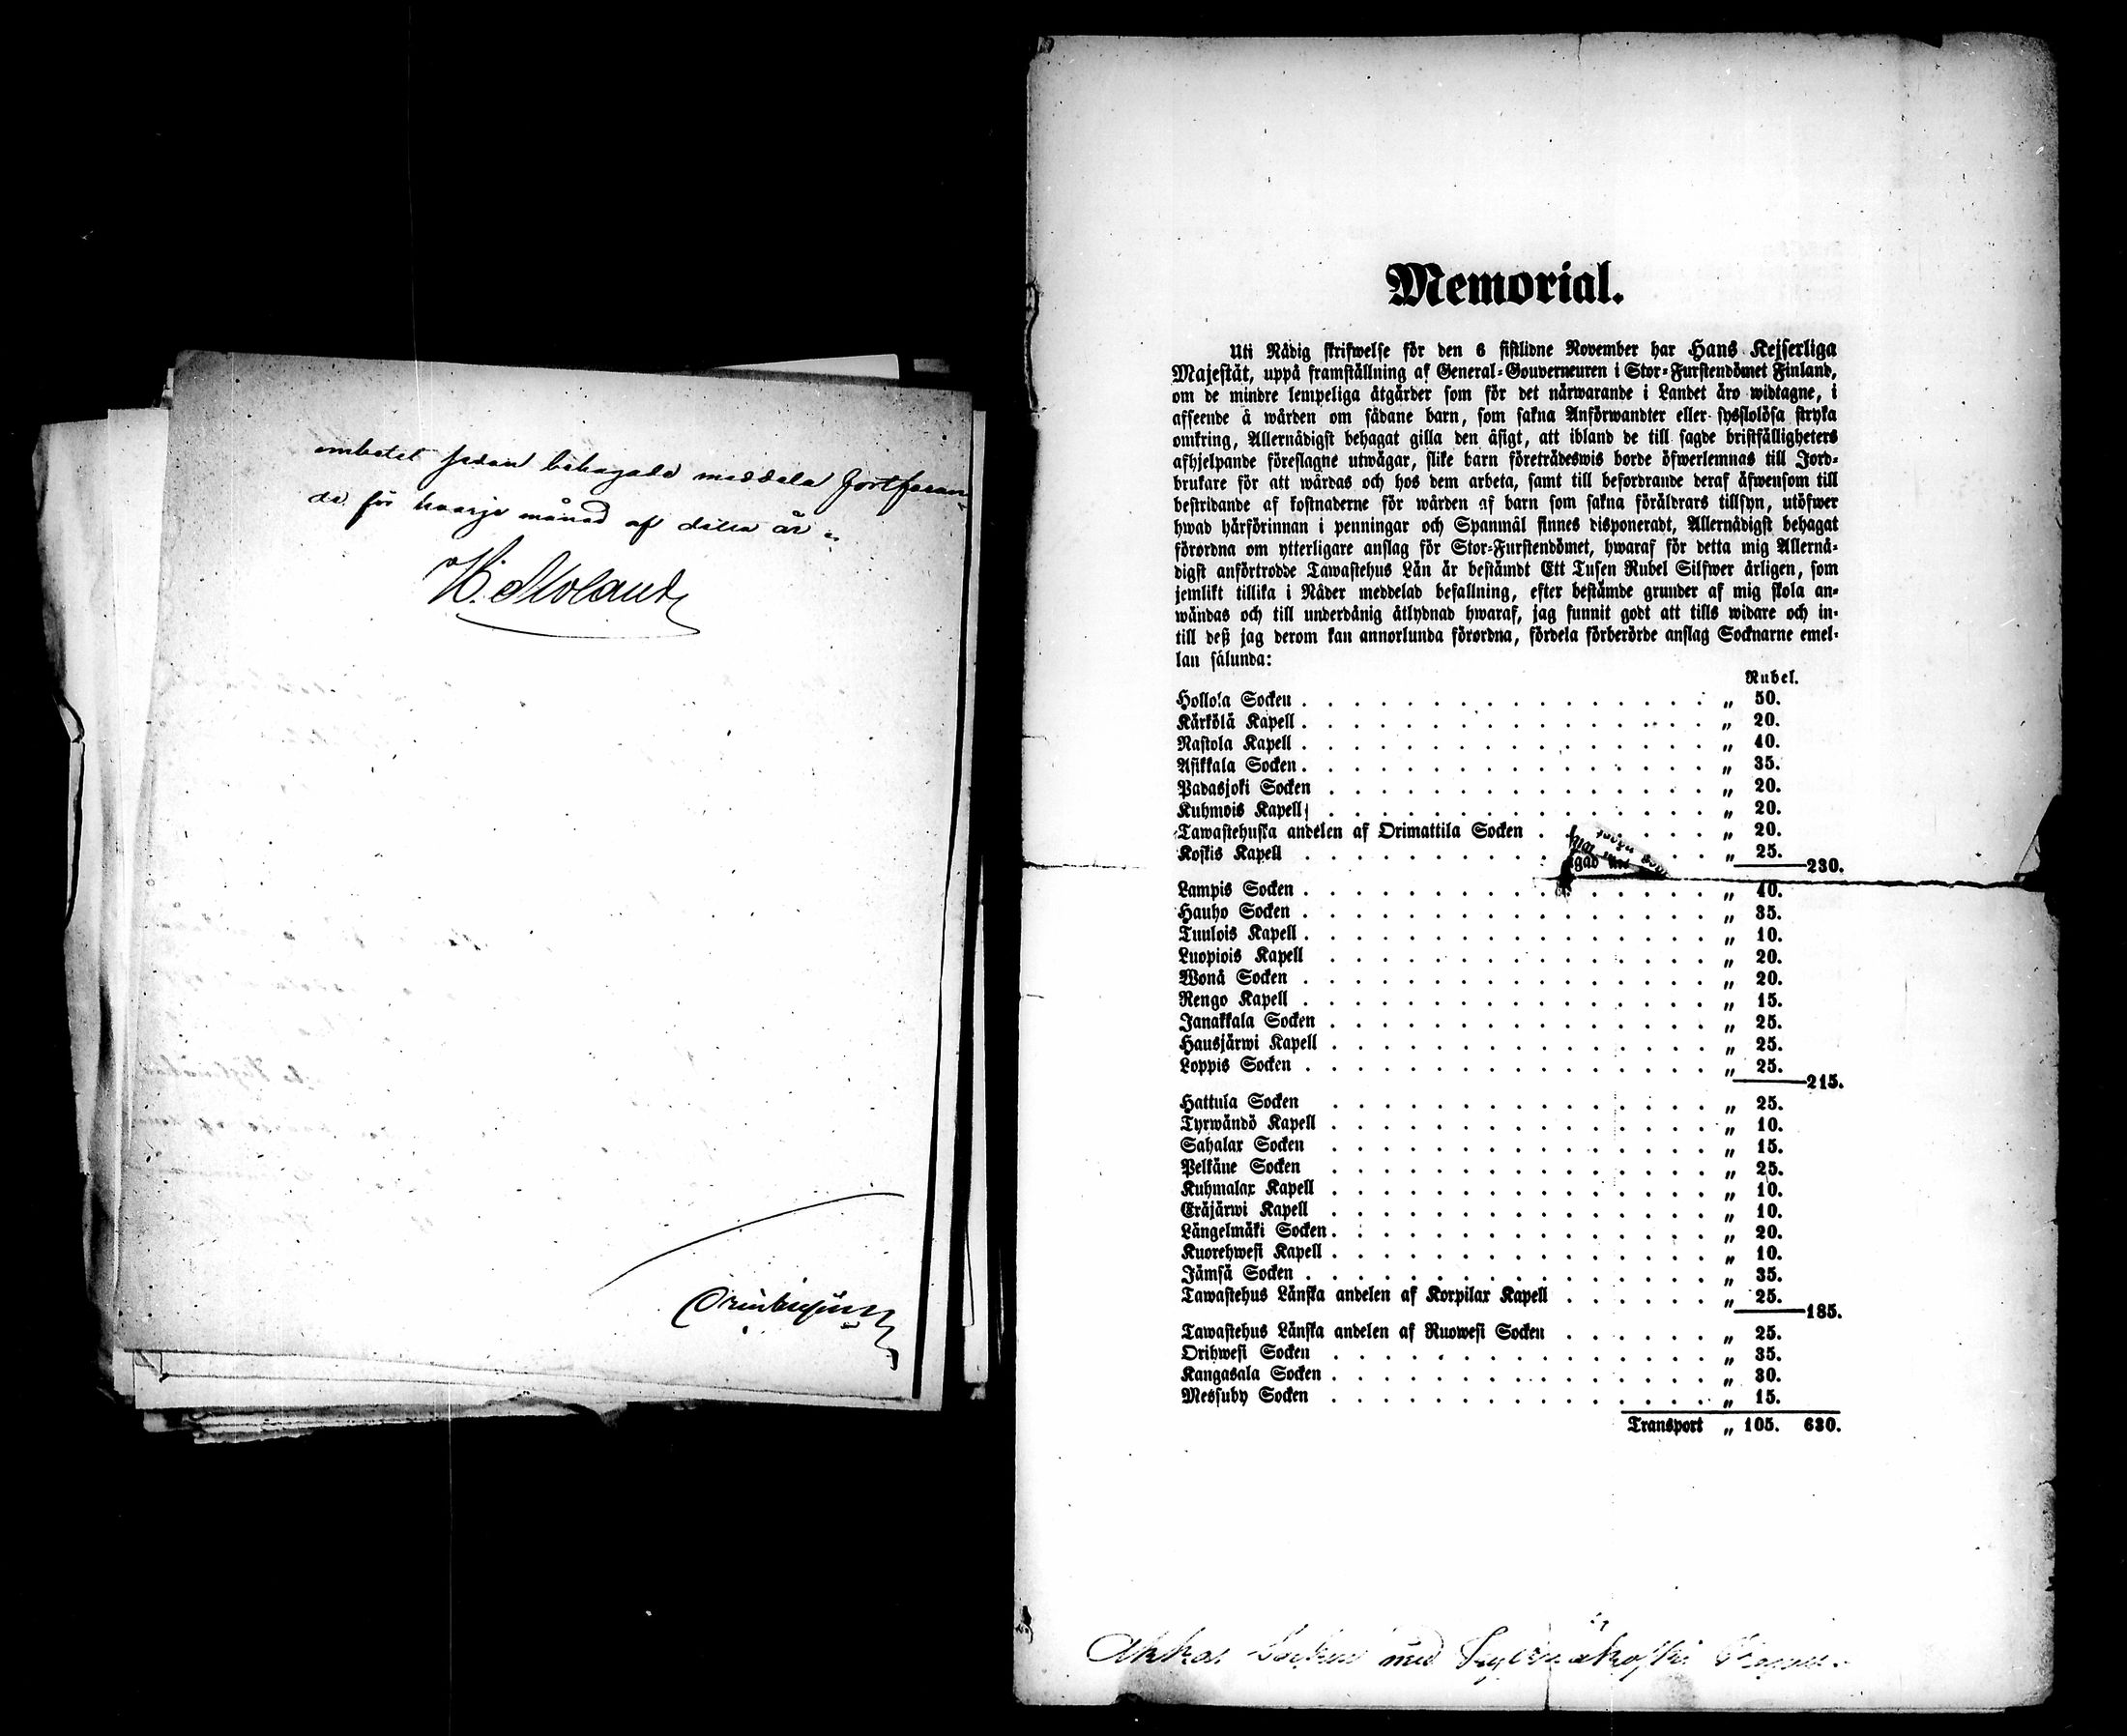 embetet sedan behagade meddela fortfaran-
de för hvarje månad af detta år.
Memorial.
Uti Nådig skrifwelse för den 6 sistlidne November har Hans Kejserliga
Majestät, uppå framställning af General-Gouverneuren i Stor-Furstendömet Finland,
om de mindre lempeliga åtgärder som för det närwarande i Landet äro widtagne, i
afseende å wården om sådane barn, som sakna Anförwandter eller sysslolösa stryka
omkring, Allernådigst behagat gilla den åsigt, att ibland de till sagde bristfälligheters
afhjelpande föreslagne utwägar, slike barn företrädeswis borde öfwerlemnas till Jord-
brukare för att wårdas och hos dem arbeta, samt till befordrande deraf äfwensom till
bestridande af kostnaderne för wården af barn som sakna föräldrars tillsyn, utöfwer
hwad härförinnan i penningar och Spanmål finnes disponeradt, Allernådigst behagat
förordna om ytterligare anslag för Stor-Furstendömet, hwaraf för detta mig Allernå-
digst anförtrodde Tawastehus Län är bestämdt Ett Tusen Rubel Silfwer årligen, som
jemlikt tillika i Nåder meddelad befallning, efter bestämde grunder af mig skola an-
wändas och till underdånig åtlydnad hwaraf, jag funnit godt att tills widare och in-
till deß jag derom kan annorlunda förordna, fördela förberörde anslag Socknarne emel-
lan sålunda:
Rubel.
Hollola Socken . . . „ 50.
Kärkölä Kapell . . . „ 20.
Nastola Kapell . . . „ 40.
Asikkala Socken . . . „ 35.
Padasjoki Socken . . . „ 20.
Kuhmois Kapell . . . „ 20.
Tawastehuska andelen af Orimattila Socken . . . „ 20.
Koskis Kapell . . . „ 25.
230.
Lampis Socken . . . „ 40.
Hauho Socken . . . „ 35.
Tuulois Kapell . . . „ 10.
Luopiois Kapell . . . „ 20.
Wonå Socken . . . „ 20.
Rengo Kapell . . . „ 15.
Janakkala Socken . . . „ 25.
Hausjärwi Kapell . . . „ 25.
Loppis Socken . . . „ 25.
215.
Hattula Socken . . . „ 25.
Tyrwändö Kapell . . . „ 10.
Sahalax Socken . . . „ 15.
Pelkäne Socken . . . „ 25.
Kuhmalax Kapell . . . „ 10.
Eräjärwi Kapell . . . „ 10.
Längelmäki Socken . . . „ 20.
Kuorehwesi Kapell . . . „ 10.
Jämsä Socken . . . „ 35.
Tawastehus Länska andelen af Korpilax Kapell . . . „ 25.
185.
Tawastehus Länska andelen af Ruowesi Socken . . . „ 25.
Orihwesi Socken . . . „ 35.
Kangasala Socken . . . „ 30.
Messuby Socken . . . „ 15.
Transport „ 105. 630.
Akkas Socken med